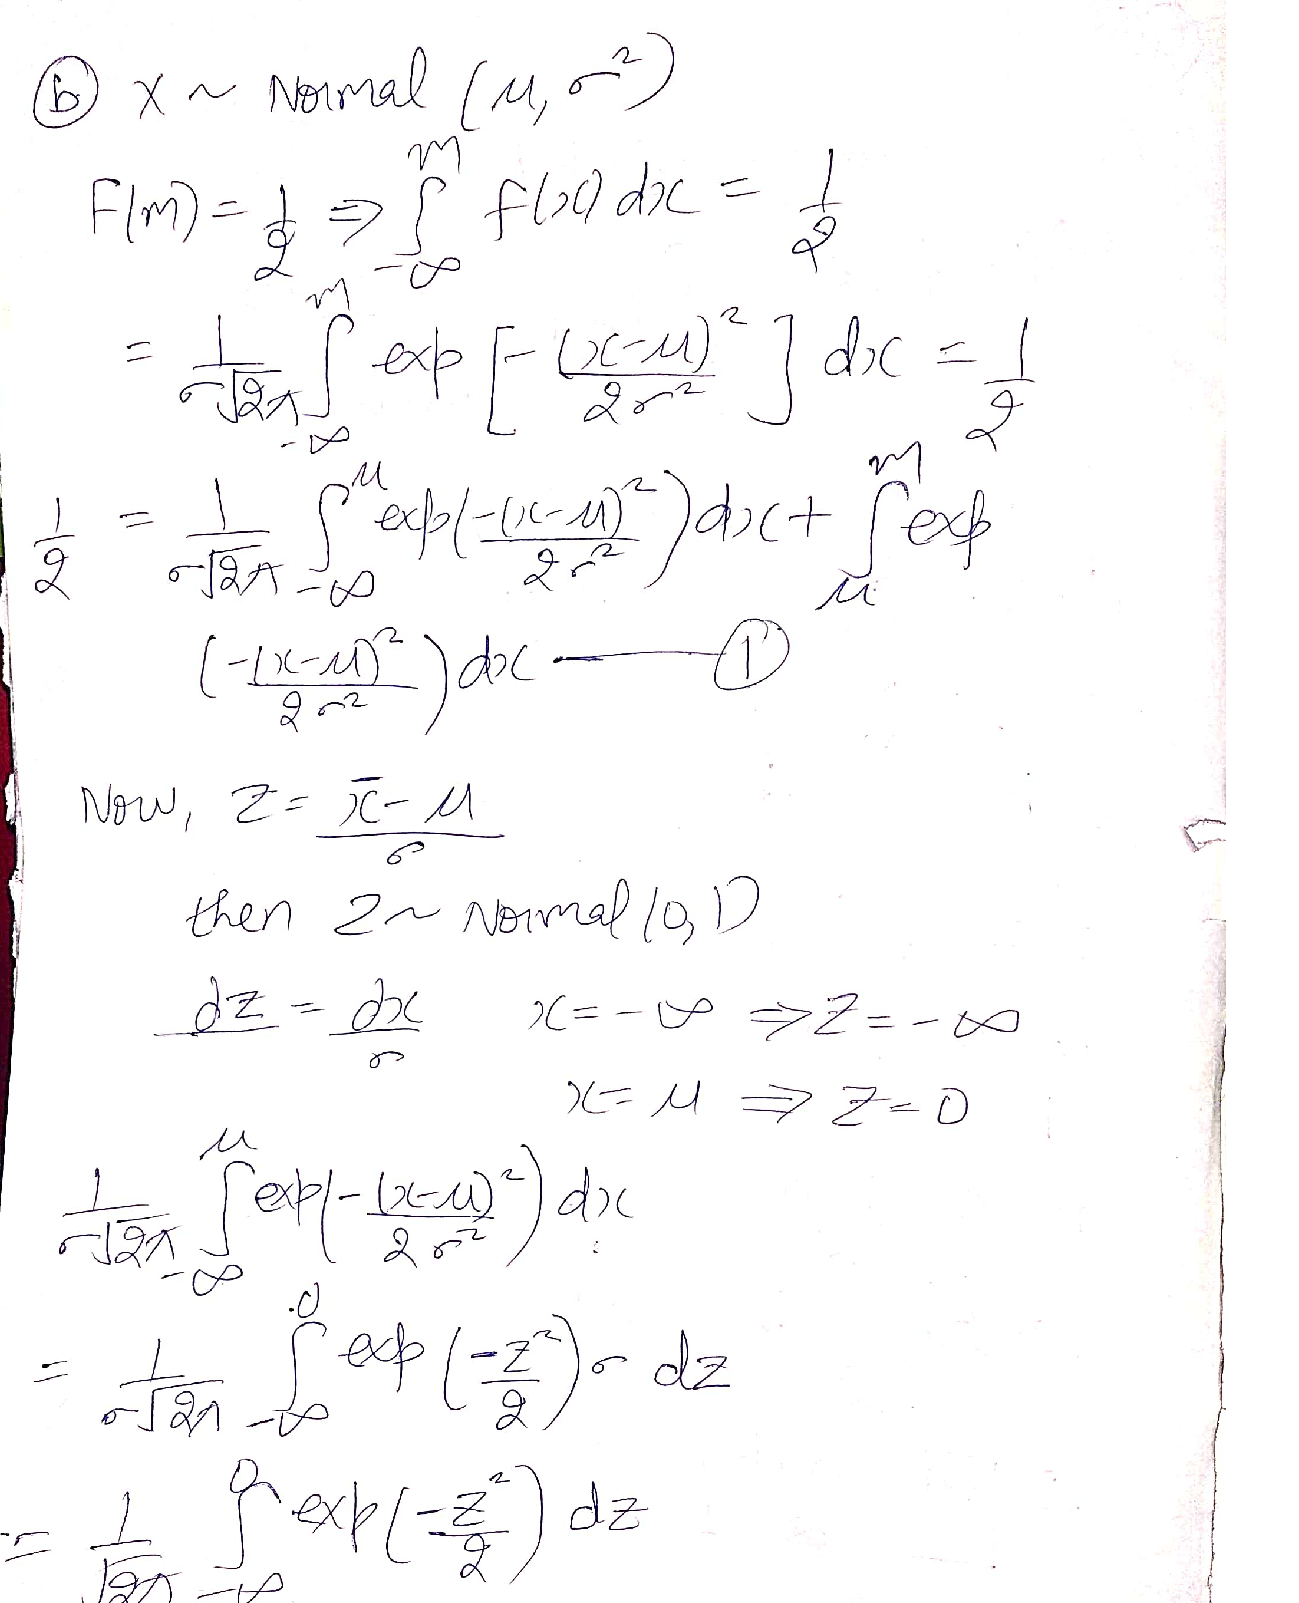 (b) X ~ Normal (μ, σ²)
F(m) = 1/2 ⇒ ∫_{-∞}^{m} f(x) dx = 1/2
= 1/(σ√2π) ∫_{-∞}^{m} exp [-(x-μ)²/2σ²] dx = 1/2
1/2 = 1/(σ√2π) ∫_{-∞}^{μ} exp(-(x-μ)²/2σ²) dx + ∫_{μ}^{m} exp
(-(x-μ)²/2σ²) dx —— (1)
Now, Z = (x̄-μ)/σ
then Z ~ Normal (0,1)
dz = dx/σ x = -∞ ⇒ Z = -∞
x = μ ⇒ Z = 0
1/(σ√2π) ∫_{-∞}^{μ} exp(-(x-μ)²/2σ²) dx
= 1/(σ√2π) ∫_{-∞}^{0} exp (-z²/2) σ dz
= 1/√2π ∫_{-∞}^{0} exp(-z²/2) dz